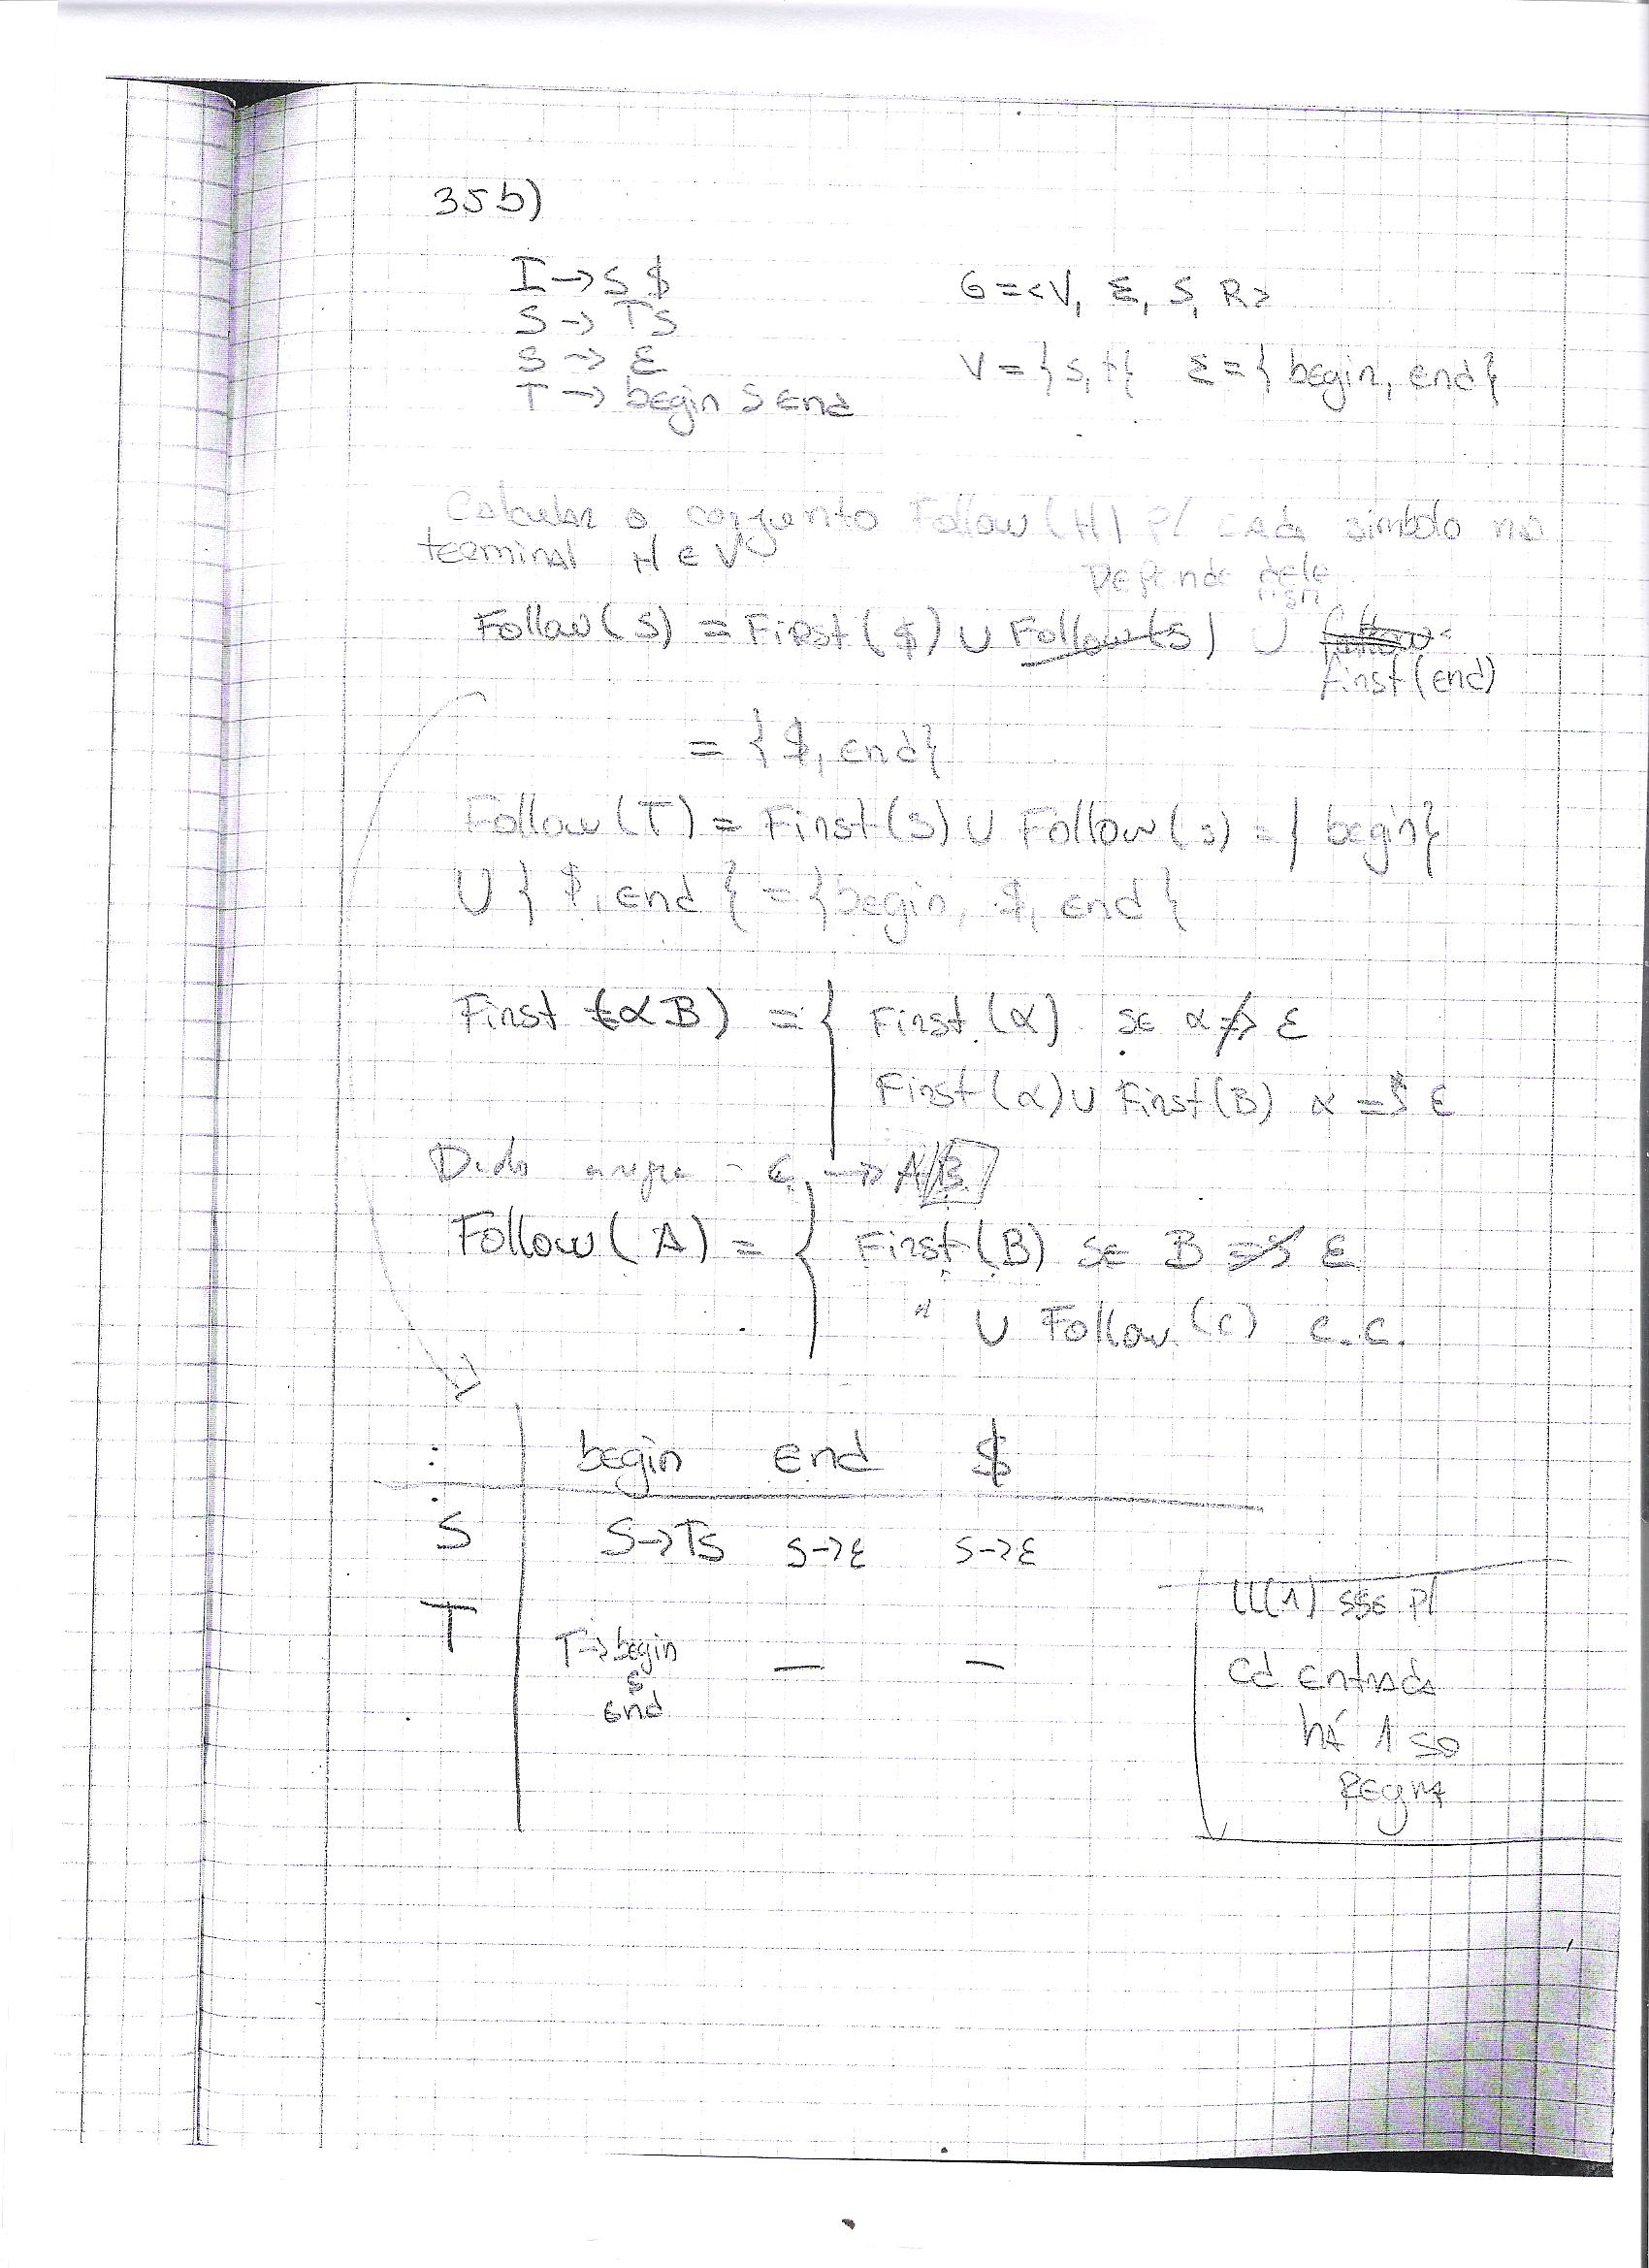 35b)
I → S $
G = <V, Σ, S, R>
S → TS
S → ε
V = {S, T} Σ = { begin, end }
T → begin S End
Calcular o conjunto Follow (H) p/ cada simbolo no
terminal H ∈ V
Depende dele
Follow (S) = First ($) ∪ Follow(S) ∪
First (end)
= { $, end }
Follow (T) = First (S) ∪ Follow (S) = { begin }
∪ { $, end } = { begin, $, end }
First (αB) = { First (α) se α ≠> ε
First (α) ∪ First (B) α => ε
Dado regra C → A B
Follow ( A ) = { First (B) se B ≠> ε
" ∪ Follow (C) c.c.
: begin End $
S S→TS S→ε S→ε
T T→begin S end — —
LL(1) sse p/
cd entrada
há 1 so
Regra